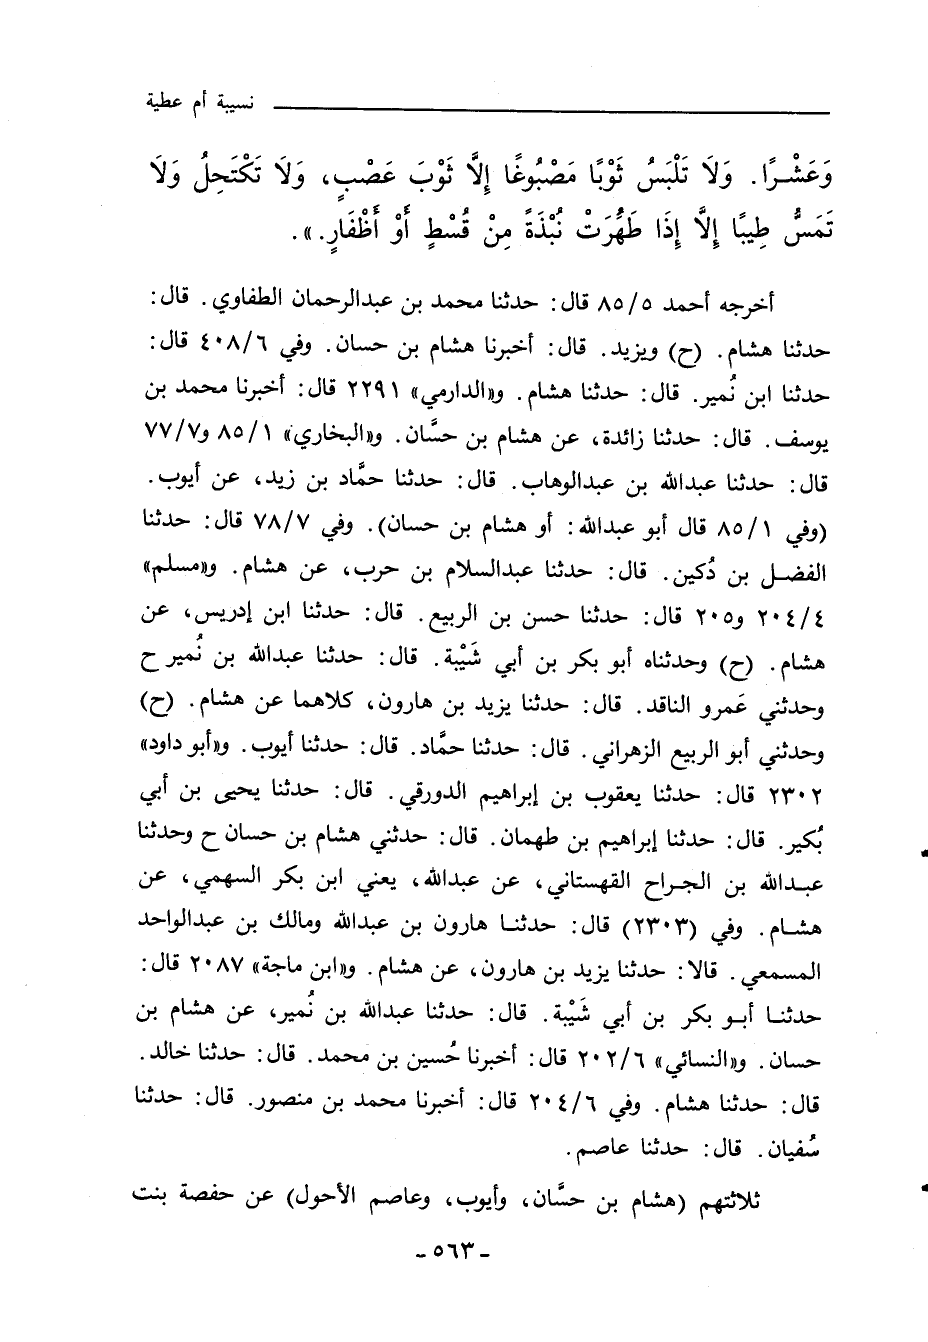 نسيبة أم عطية
وَعَشْرًا. وَلَا تَلْبَسُ ثَوْبًا مَصْبُوغًا إِلَّا ثَوْبَ عَصْبٍ، وَلَا تَكْتَحِلُ وَلَا
تَمَسُّ طِيبًا إِلَّا إِذَا طَهُرَتْ نُبْذَةً مِنْ قُسْطٍ أَوْ أَظْفَارٍ.».
أخرجه أحمد ٨٥/٥ قال: حدثنا محمد بن عبدالرحمان الطفاوي. قال:
حدثنا هشام. (ح) ويزيد. قال: أخبرنا هشام بن حسان. وفي ٤٠٨/٦ قال:
حدثنا ابن نُمير. قال: حدثنا هشام. و«الدارمي» ٢٢٩١ قال: أخبرنا محمد بن
يوسف. قال: حدثنا زائدة، عن هشام بن حسَّان. و«البخاري» ٨٥/١ و٧٧/٧
قال: حدثنا عبدالله بن عبدالوهاب. قال: حدثنا حمَّاد بن زيد، عن أيوب.
(وفي ٨٥/١ قال أبو عبدالله: أو هشام بن حسان). وفي ٧٨/٧ قال: حدثنا
الفضل بن دُكين. قال: حدثنا عبدالسلام بن حرب، عن هشام. و«مسلم»
٢٠٤/٤ و٢٠٥ قال: حدثنا حسن بن الربيع. قال: حدثنا ابن إدريس، عن
هشام. (ح) وحدثناه أبو بكر بن أبي شَيْبة. قال: حدثنا عبدالله بن نُمير ح
وحدثني عَمرو الناقد. قال: حدثنا يزيد بن هارون، كلاهما عن هشام. (ح)
وحدثني أبو الربيع الزهراني. قال: حدثنا حمَّاد. قال: حدثنا أيوب. و«أبو داود»
٢٣٠٢ قال: حدثنا يعقوب بن إبراهيم الدورقي. قال: حدثنا يحيى بن أبي
بُكير. قال: حدثنا إبراهيم بن طهمان. قال: حدثني هشام بن حسان ح وحدثنا
عبدالله بن الجراح القهستاني، عن عبدالله، يعني ابن بكر السهمي، عن
هشام. وفي (٢٣٠٣) قال: حدثنا هارون بن عبدالله ومالك بن عبدالواحد
المسمعي. قالا: حدثنا يزيد بن هارون، عن هشام. و«ابن ماجة» ٢٠٨٧ قال:
حدثنا أبو بكر بن أبي شَيْبة. قال: حدثنا عبدالله بن نُمير، عن هشام بن
حسان. و«النسائي» ٢٠٢/٦ قال: أخبرنا حُسين بن محمد. قال: حدثنا خالد.
قال: حدثنا هشام. وفي ٢٠٤/٦ قال: أخبرنا محمد بن منصور. قال: حدثنا
سُفيان. قال: حدثنا عاصم.
ثلاثتهم (هشام بن حسَّان، وأيوب، وعاصم الأحول) عن حفصة بنت
- ٥٦٣ -